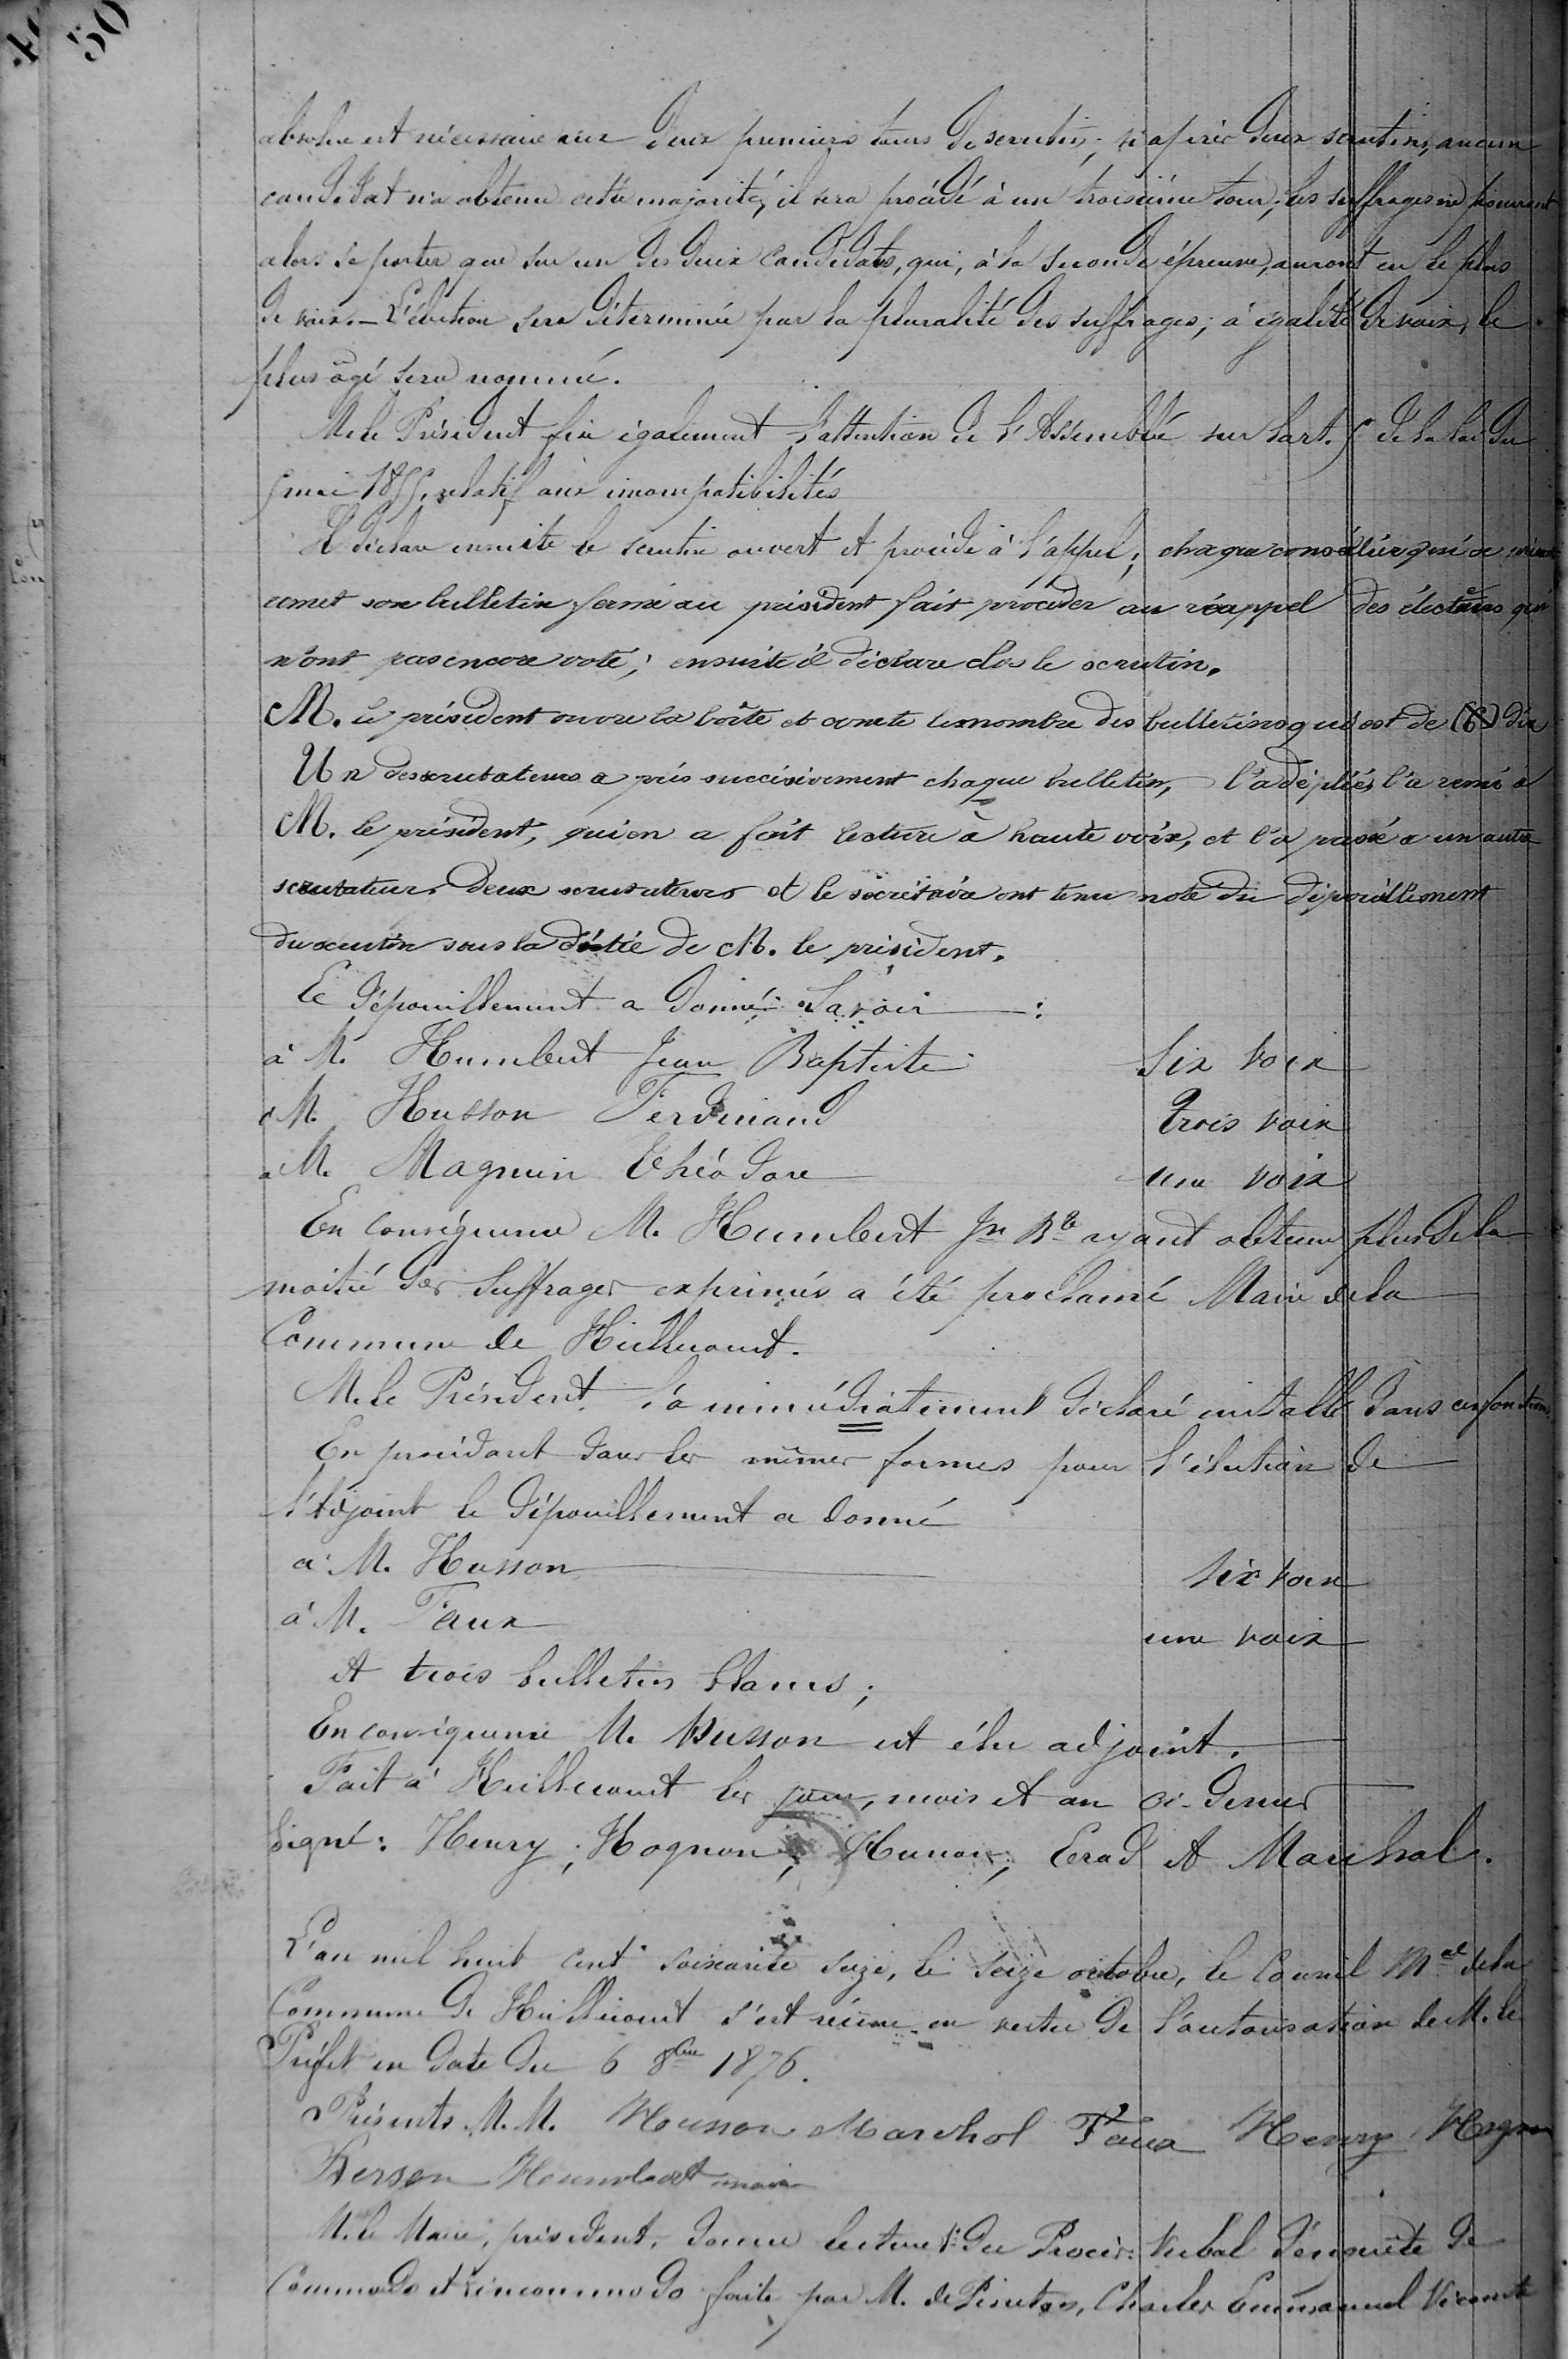 50
absolue est nécessaire aux deux premiers tours de scrutin; si après deux scrutins, aucun
candidat n'a obtenu cette majorité, il sera procédé à un troisième tour; les suffrages ne pourront
alors se porter que sur un des deux candidats, qui, à la seconde épreuve, auront eu le plus
de voix. _ L'élection sera déterminée par la pluralité des suffrages; à égalité de voix, le
plus âgé sera nommé.
M. le Président fixe également l'attention de l'Assemblée sur l'art. 5 de la loi du
5 mai 1855, relatif aux incompatibilités
Il déclare ensuite le scrutin ouvert et procède à l'appel; chaque conseiller
remet son bulletin fermé au président fait procéder au réappel des électeurs qui
n'ont pas encore voté; ensuite il déclare clos le scrutin.
M. le président ouvre la boîte et compte le nombre des bulletins qui est de dix
Un des scrutateurs a pris successivement chaque bulletin, l'a déplié, l'a remis à
M. le président, qui en a fait lecture à haute voix, et l'a passé à un autre
scrutateur. deux scrutateurs et le secrétaire ont tenu note du dépouillement
du scrutin sous la dictée de M. le président.
Le dépouillement a donné Savoir :
à M. Humbert Jean Baptiste Six voix
à M. Husson Ferdinand Trois voix
à M. Magnien Théodore une voix
En conséquence M. Humbert Jn Bte ayant obtenu plus de la
moitié des suffrages exprimés a été proclamé Maire de la
Commune de Huilliecourt.
M. le Président l'a immédiatement déclaré installé dans ces fonctions.
En procédant dans les mêmes formes pour l'élection de
l'adjoint le dépouillement a donné
à M. Husson six voix
à M. Faux une voix
et trois bulletins blancs;
En conséquence M. Husson est élu adjoint.
Fait à Huilliecourt les jour, mois et an ci-dessus
Signé: Henry; Hognon; Husson; Erad et Marchal.
L'an mil huit cent soixante seize, le seize octobre, le Conseil Mal de la
Commune de Huilliecourt s'est réuni en vertu de l'autorisation de M. le
Préfet en date du 6 8bre 1876.
Présents M.M. Husson Marchal Faux Henry Hognon
Berson Humbert maire
M. le Maire, président, donne lecture du Procès-Verbal d'enquête de
Commodo et incommodo faite par M. Charles Emmanuel Vicomte